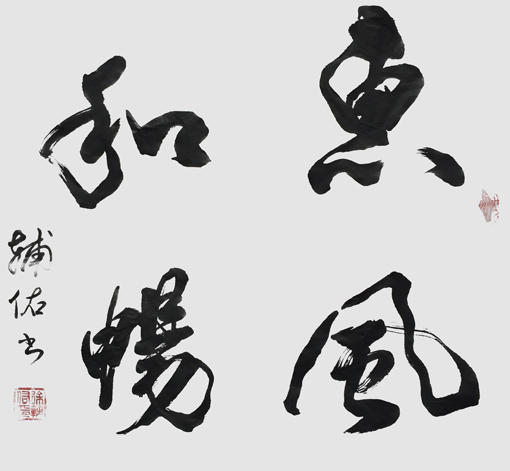 惠風
和暢
輔佑书